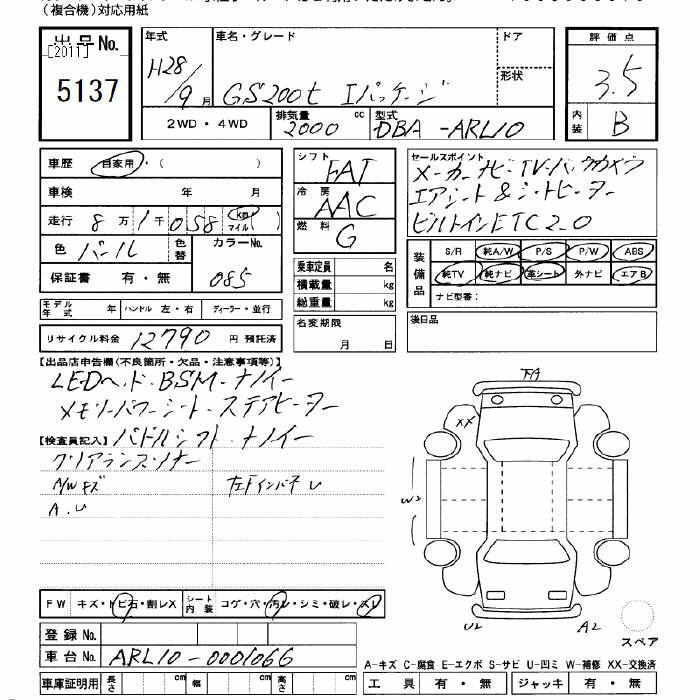 (複合機)対応用紙
出品No.
[2011]
5137
年式 H28/9月
車名・グレード GS200t Iパッケージ
ドア
形状
2WD・4WD
排気量 2000 cc
型式 DBA-ARL10
評価点 3.5
内装 B
車歴 自家用・( )
車検 年 月
走行 8万1千058 km マイル ( )
色 パール 色替 カラーNo. 085
保証書 有・無
モデル年式 年 ハンドル 左・右 ディーラー・並行
リサイクル料金 12790 円 預託済
シフト FAT
冷房 AAC
燃料 G
乗車定員 名
積載量 kg
総重量 kg
名変期限 月 日
セールスポイント
メーカーナビ・TV・バックカメラ
エアシート&シートヒーター
ビルトインETC2.0
装備品 S/R 純A/W P/S P/W ABS
純TV 純ナビ 革シート 外ナビ エアB
ナビ型番:
後日品
【出品店申告欄(不良箇所・欠品・注意事項等)】
LEDヘッド・BSM・ナノイー
メモリーパワーシート・ステアヒーター
【検査員記入】パドルシフト・ナノイー
クリアランスソナー
A/Wキズ
A.U
FA
XX
W2
U2
A2
スペア
FW キズ・トビ石・割レX シート内装 コゲ・穴・汚レ・シミ・破レ・スレ
登録No.
車台No. ARL10-0001066
車庫証明用 長さ cm 幅 cm 高さ cm
A-キズ C-腐食 E-エクボ S-サビ U-凹ミ W-補修 XX-交換済
工具 有・無 ジャッキ 有・無